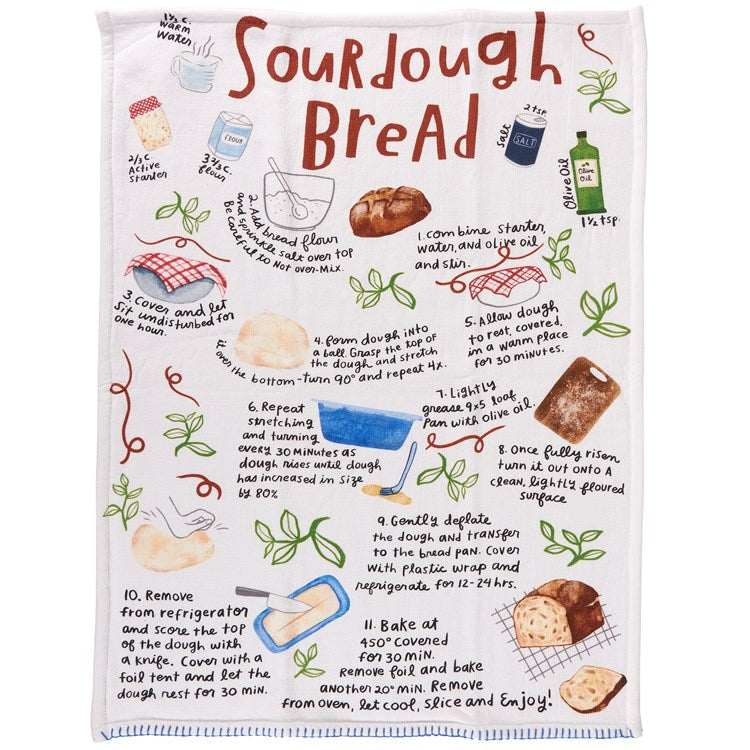 1⅓ C.
Warm
Water
Sourdough
Bread
2/3 C.
Active
Starter
FLOUR
3 ⅔ C.
flour
2 tsp
Salt
SALT
Olive Oil
Olive
Oil
1 ½ tsp.
1. Combine starter,
water, and olive oil
and stir.
2. Add bread flour
and sprinkle salt over top
Be careful to Not over-Mix.
3. Cover and let
sit undisturbed for
one hour.
4. form dough into
a ball. Grasp the top of
the dough and stretch
it over the bottom-turn 90° and repeat 4x.
5. Allow dough
to rest, covered,
in a warm place
for 30 minutes.
6. Repeat
stretching
and turning
every 30 Minutes as
dough rises until dough
has increased in size
by 80%
7. Lightly
grease 9x5 loaf
pan with olive oil.
8. Once fully risen
turn it out onto A
clean, lightly floured
surface
9. Gently deflate
the dough and transfer
to the bread pan. Cover
with plastic wrap and
refrigerate for 12-24 hrs.
10. Remove
from refrigerator
and score the top
of the dough with
a knife. Cover with a
foil tent and let the
dough rest for 30 min.
11. Bake at
450° covered
for 30 min.
Remove foil and bake
another 20° min. Remove
from oven, let cool, slice and Enjoy!